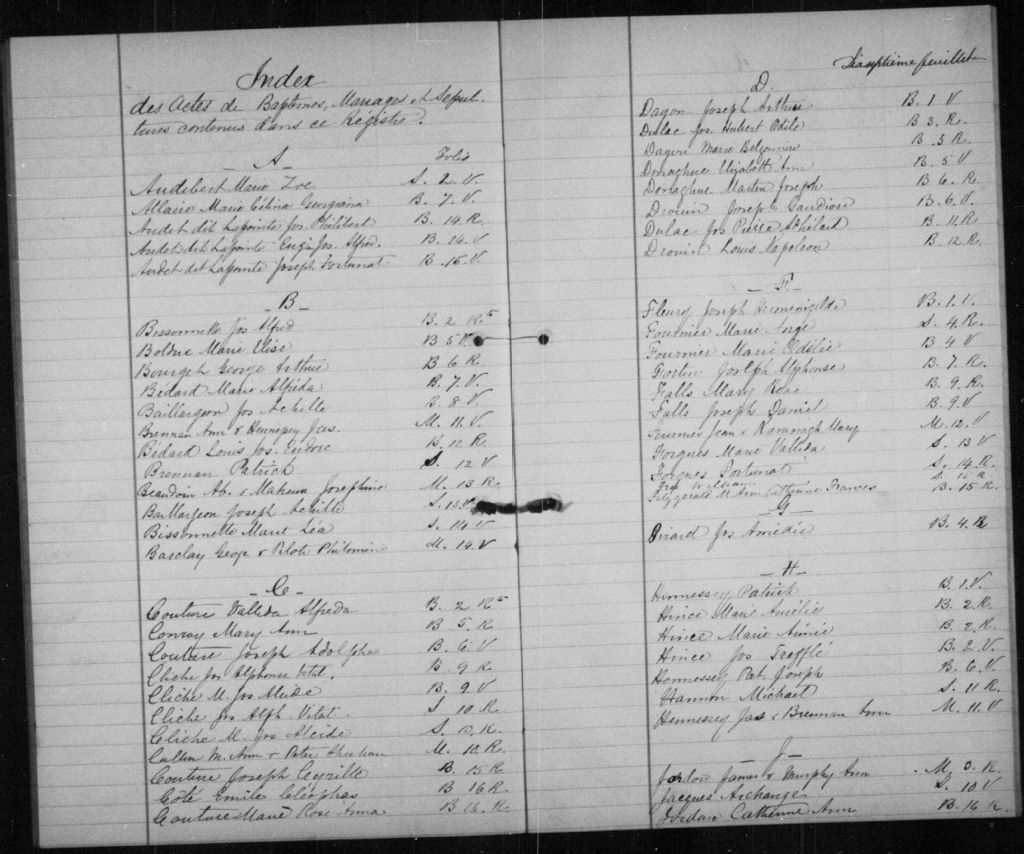 Index
des Actes de Baptêmes, Mariages et Sépul-
tures contenus dans ce Registre.
- A - Folio
Audebert Marie Zoe S. 2. V.
Allaire Marie Célina Georgiana B. 7. V.
Audet dit Lapointe Jos. Philibert B. 14. R.
Audet dit Lapointe Jos. Alfred. B. 14. V
Audet dit Lapointe Joseph Fortunat B. 15. V.
- B -
Bissonnette Jos Alfred B. 2 R.
Bolduc Marie Elise B 5
Bourget George Arthur B 6 R.
Bédard Marie Alféda B. 7. V.
Baillargeon Jos Achille B. 8 V
Brennan Ann & Hennessy Jas. M. 11. V.
Bédard Louis Jos. B. 12 R
Brennan Patrick S. 12 V
Beaudoin & Maheux Josephine M. 13 R.
Baillargeon Joseph Achille S. 13 V.
Bissonnette Marie Léa S. 14 V
Barclay George & Pilote Philomène M. 14. V
- C -
Couture Valleda Alfreda B. 2 R
Conway Mary Ann B. 5. R
Couture Joseph Adolphe B. 6. V
Cliche Jos Alphonse Vital. B. 9 R
Cliche M. Jos Alcide B. 9. V
Cliche Jos Alph. Vital. S 10 R.
Cliche M. Jos Alcide S. 10. R.
Cullen M. Ann & Peter Sheehan M. 10. R.
Couture Joseph Cyrille B. 15 R
Côté Emile Cléophas B 16 R
Couture Marie Rose Anna B. 16. R.
feuillet
D.
Dagon Joseph Arthur B. 1 V
Dulac Jos. Hubert Odile B 3. R.
Dagon Marie B 3 R.
Donaghue Elizabeth Ann B. 5 V
Donaghue Martin Joseph B 6. R.
Drouin Joseph Gaudiose B. 6. V
Dulac Jos Pierre Philéat B. 11 R
Drouin Louis Napoleon B. 12 R.
- F. -
Fleury Joseph Herménégilde B. 1. V.
Fournier Marie S. 4. R.
Fournier Marie Odélie B 4 V
Fortin Joseph Alphonse B. 7. R.
Falls Mary Rose B. 9. R.
Falls Joseph Daniel B. 9. V
Fournier Jean & Kavanagh Mary M. 12. V
Forgues Marie Valleda S. 13 V
Forgues Fortunat S. 14. R.
William S. 15 R
Fitzgerald M Ann Catherine Frances B. 15 R.
- G -
Girard Jos Amédée B. 4. R
- H -
Hennessey Patrick B. 1. V.
Hince Marie Amélie B. 2. R.
Hince Marie Aimée B. 2. R.
Hince Jos Trefflé B. 2. V.
Hennessey Pat. Joseph B. 6. V
Hannon Michael S. 11 R.
Hennessey Jas & Brennan Ann M. 11. V
- J -
Jordon James & Murphy Ann M. 3. R.
Jacques Archange S. 10 V
Jordan Catherine Ann B. 16 R